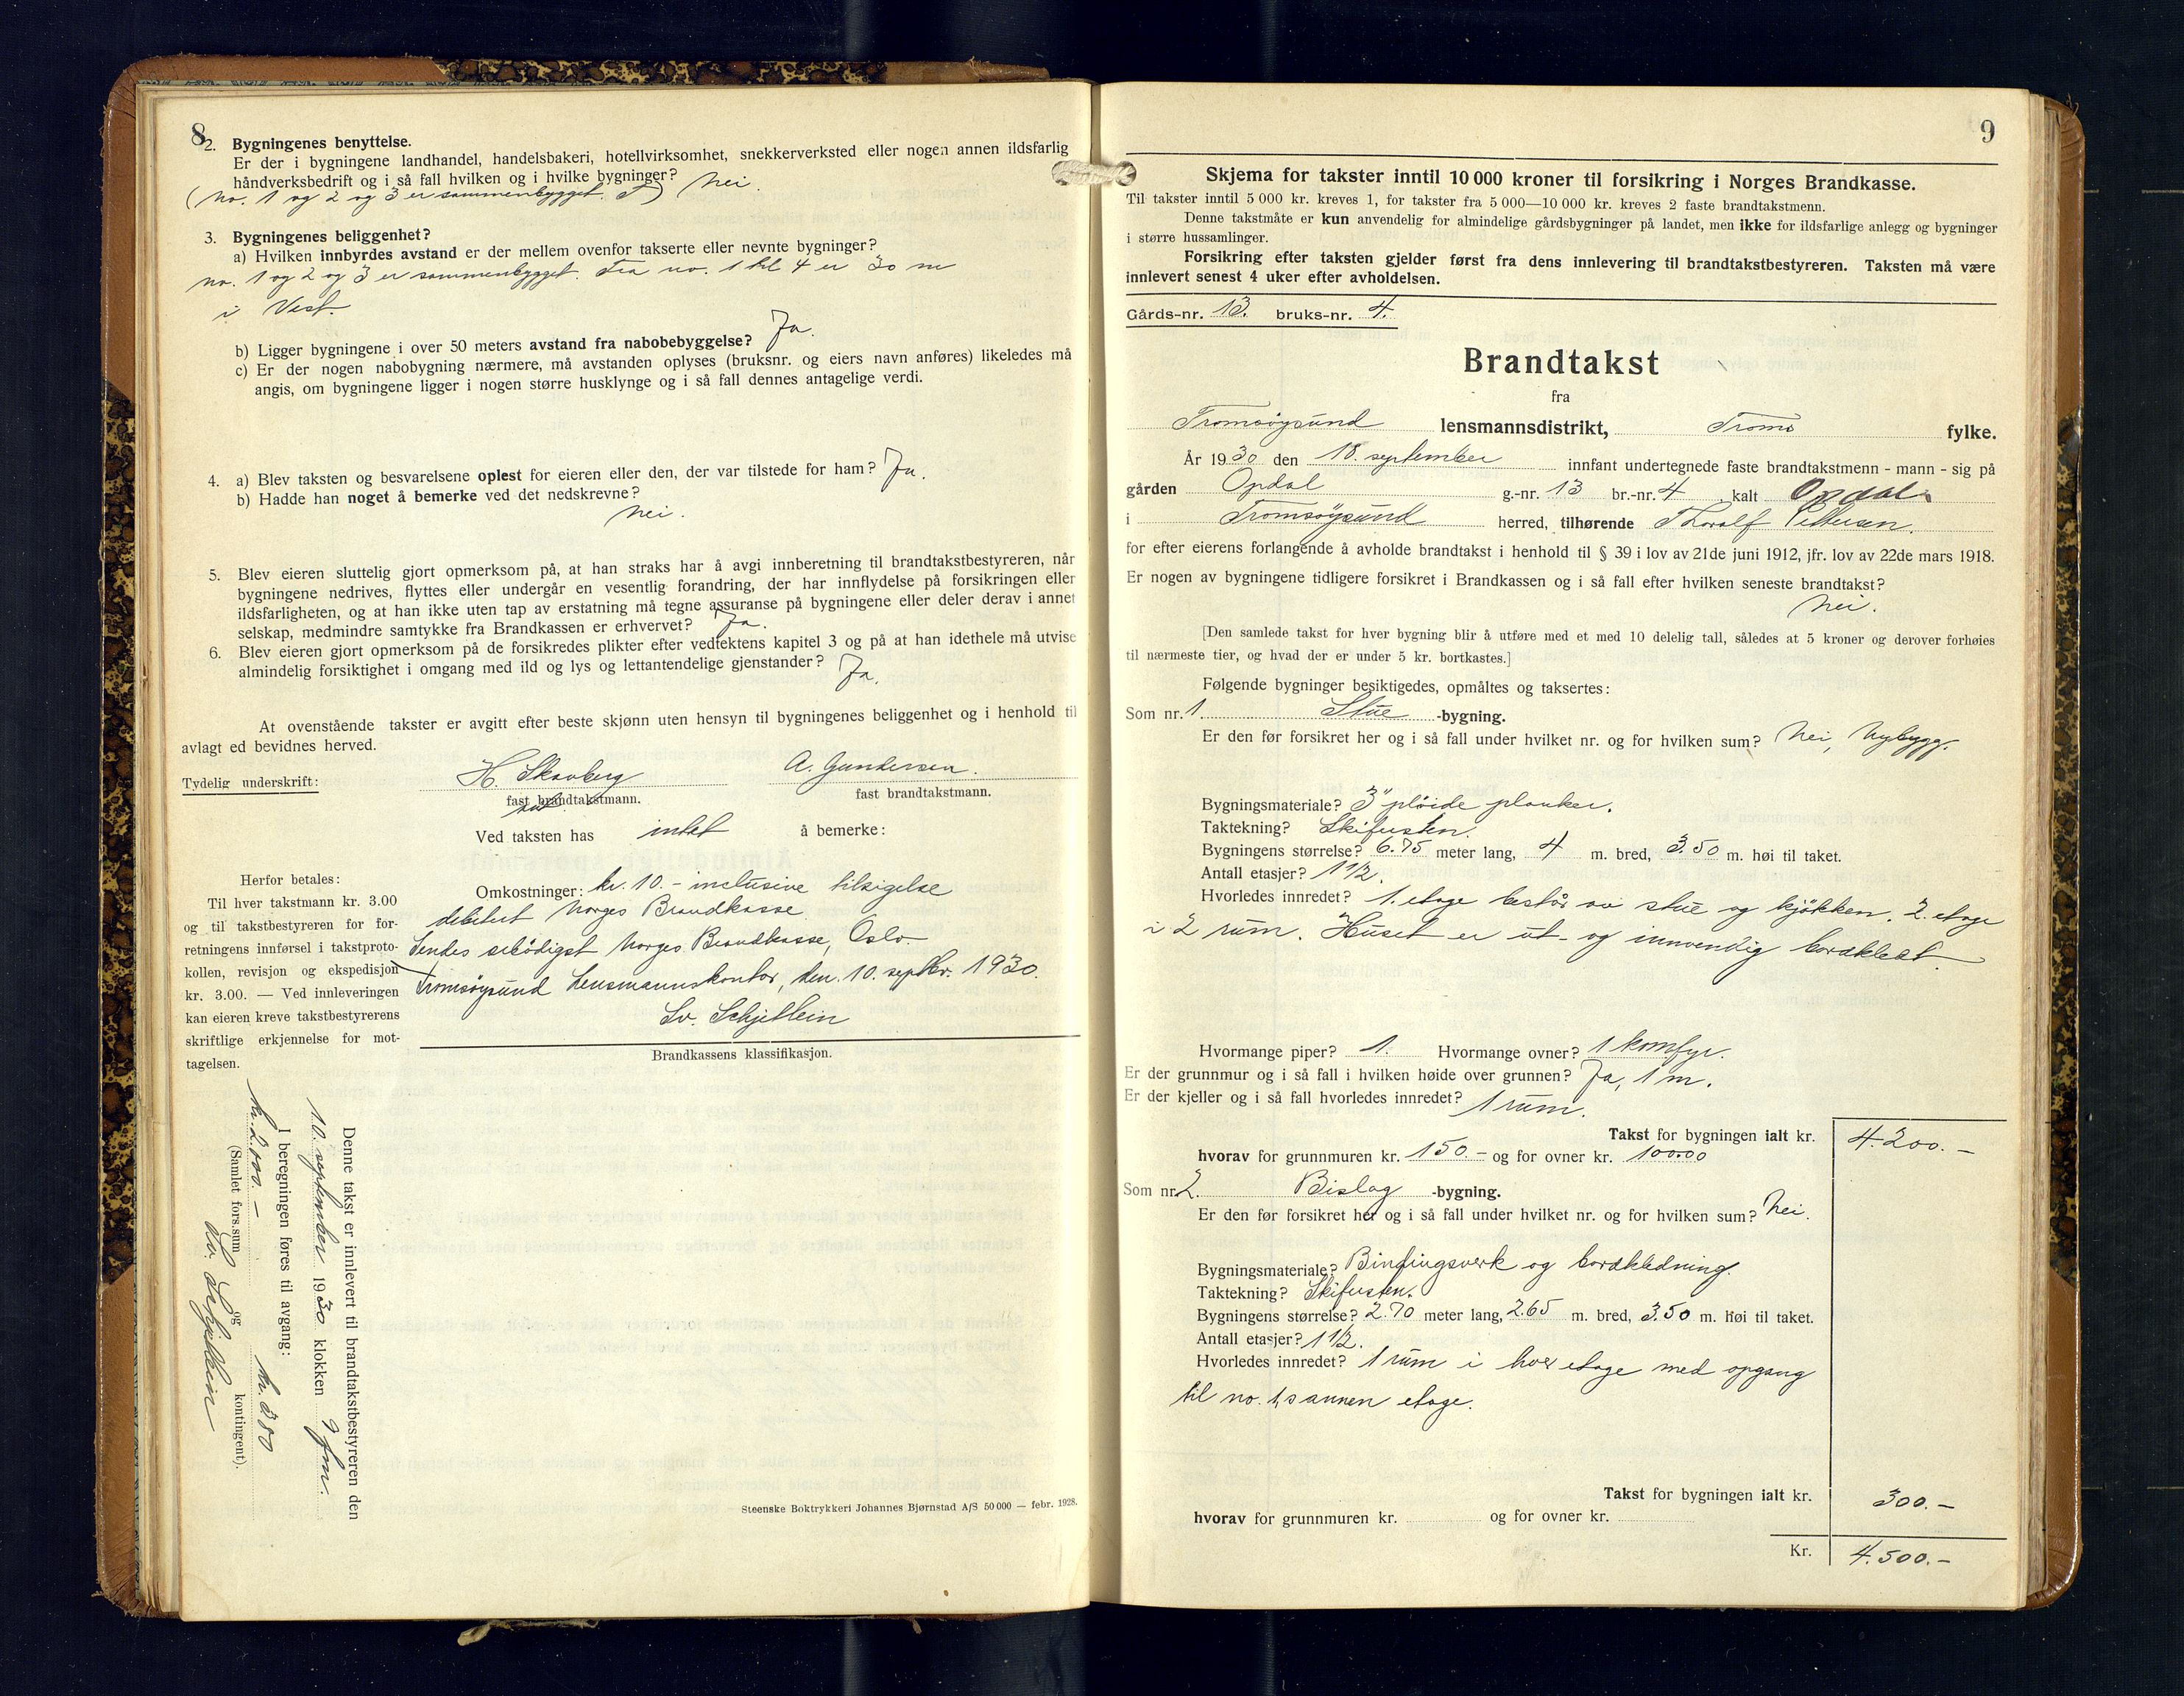 8
2. Bygningenes benyttelse.
Er der i bygningene landhandel, handelsbakeri, hotellvirksomhet, snekkerverksted eller nogen annen ildsfarlig
håndverksbedrift og i så fall hvilken og i hvilke bygninger? Nei.
(No. 1 og 2 og 3 er sammenbygget.)
3. Bygningenes beliggenhet?
a) Hvilken innbyrdes avstand er der mellem ovenfor takserte eller nevnte bygninger?
no. 1 og 2 og 3 er sammenbygget. Fra no. 1 til 4 er 30 m
i Vest.
b) Ligger bygningene i over 50 meters avstand fra nabobebyggelse? Ja.
c) Er der nogen nabobygning nærmere, må avstanden oplyses (bruksnr. og eiers navn anføres) likeledes må
angis, om bygningene ligger i nogen større husklynge og i så fall dennes antagelige verdi.
4. a) Blev taksten og besvarelsene oplest for eieren eller den, der var tilstede for ham? Ja.
b) Hadde han noget å bemerke ved det nedskrevne?
Nei.
5. Blev eieren sluttelig gjort opmerksom på, at han straks har å avgi innberetning til brandtakstbestyreren, når
bygningene nedrives, flyttes eller undergår en vesentlig forandring, der har innflydelse på forsikringen eller
ildsfarligheten, og at han ikke uten tap av erstatning må tegne assuranse på bygningene eller deler derav i annet
selskap, medmindre samtykke fra Brandkassen er erhvervet? Ja.
6. Blev eieren gjort opmerksom på de forsikredes plikter efter vedtektens kapitel 3 og på at han idethele må utvise
almindelig forsiktighet i omgang med ild og lys og lettantendelige gjenstander? Ja.
At ovenstående takster er avgitt efter beste skjønn uten hensyn til bygningenes beliggenhet og i henhold til
avlagt ed bevidnes herved.
Tydelig underskrift: H. Skavberg A. Gundersen.
fast brandtakstmann. fast brandtakstmann.
Ved taksten has intet å bemerke:
Herfor betales:
Til hver takstmann kr. 3.00
og til takstbestyreren for for-
retningens innførsel i takstproto-
kollen, revisjon og ekspedisjon
kr. 3.00. — Ved innleveringen
kan eieren kreve takstbestyrerens
skriftlige erkjennelse for mot-
tagelsen.
Omkostninger: kr. 10.- inclusive tilsigelse
debitert Norges Brandkasse.
Sendes ærbödigst Norges Brandkasse, Oslo.
Tromsøysund Lensmannskontor, den 10. septbr. 1930.
Sv. Schjetlein
Brandkassens klassifikasjon.
Denne takst er innlevert til brandtakstbestyreren den
10. september 1930 klokken 9 fm.
I beregningen føres til avgang:
kr. 2.000.- kr. 2 80
(Samlet fors.sum og kontingent).
Sv. Schjetlein
Steenske Boktrykkeri Johannes Bjørnstad A/S 50 000 — febr. 1928.
9
Skjema for takster inntil 10 000 kroner til forsikring i Norges Brandkasse.
Til takster inntil 5 000 kr. kreves 1, for takster fra 5 000—10 000 kr. kreves 2 faste brandtakstmenn.
Denne takstmåte er kun anvendelig for almindelige gårdsbygninger på landet, men ikke for ildsfarlige anlegg og bygninger
i større hussamlinger.
Forsikring efter taksten gjelder først fra dens innlevering til brandtakstbestyreren. Taksten må være
innlevert senest 4 uker efter avholdelsen.
Gårds-nr. 13. bruks-nr. 4.
Brandtakst
fra
Tromsöysund lensmannsdistrikt, Troms fylke.
År 1930 den 18. september innfant undertegnede faste brandtakstmenn - mann - sig på
gården Opdal g.-nr. 13 br.-nr. 4 kalt Opdal
i Tromsöysund herred, tilhørende Thoralf Pettersen.
for efter eierens forlangende å avholde brandtakst i henhold til § 39 i lov av 21de juni 1912, jfr. lov av 22de mars 1918.
Er nogen av bygningene tidligere forsikret i Brandkassen og i så fall efter hvilken seneste brandtakst?
Nei.
[Den samlede takst for hver bygning blir å utføre med et med 10 delelig tall, således at 5 kroner og derover forhøies
til nærmeste tier, og hvad der er under 5 kr. bortkastes.]
Følgende bygninger besiktigedes, opmåltes og taksertes:
Som nr. 1. Stue -bygning.
Er den før forsikret her og i så fall under hvilket nr. og for hvilken sum? Nei, Nybygg.
Bygningsmateriale? 3" plöide planker.
Taktekning? Skifersten.
Bygningens størrelse? 6.75 meter lang, 4 m. bred, 3.50 m. høi til taket.
Antall etasjer? 1 1/2.
Hvorledes innredet? 1. etage består av stue og kjökken. 2. etage
i 2 rum. Huset er ut- og innvendig bordklædt.
Hvormange piper? 1. Hvormange ovner? 1 komfyr.
Er der grunnmur og i så fall i hvilken høide over grunnen? Ja, 1 m.
Er der kjeller og i så fall hvorledes innredet? 1 rum.
Takst for bygningen ialt kr. 4.200.-
hvorav for grunnmuren kr. 150.- og for ovner kr. 100.00
Som nr. 2. Bislag -bygning.
Er den før forsikret her og i så fall under hvilket nr. og for hvilken sum? Nei.
Bygningsmateriale? Bindingsverk og bordkledning.
Taktekning? Skifersten.
Bygningens størrelse? 2.70 meter lang, 2.65 m. bred, 3.50 m. høi til taket.
Antall etasjer? 1 1/2.
Hvorledes innredet? 1 rum i hver etage med opgang
til no. 1,s annen etage.
Takst for bygningen ialt kr. 300.-
hvorav for grunnmuren kr. og for ovner kr.
Kr. 4.500.-